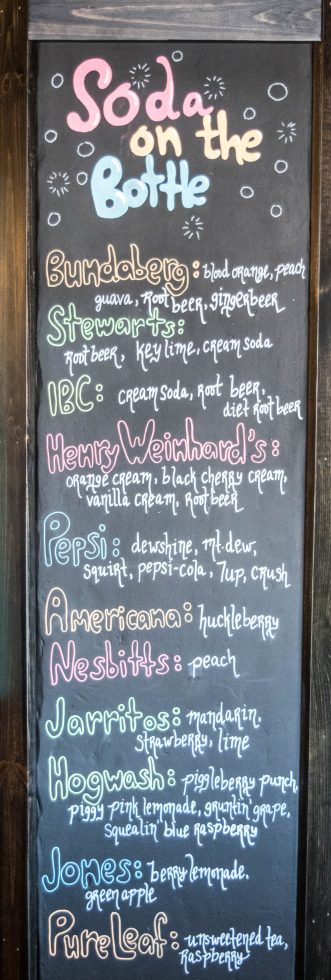 Soda
on the
Bottle
Bundaberg: blood orange, peach
guava, root beer, gingerbeer
Stewarts:
root beer, key lime, cream soda
IBC: cream soda, root beer,
diet root beer
Henry Weinhard's:
orange cream, black cherry cream,
vanilla cream, root beer
Pepsi: dewshine, mt. dew,
squirt, pepsi-cola, 7up, crush
Americana: huckleberry
Nesbitts: peach
Jarritos: mandarin,
strawberry, lime
Hogwash: piggleberry punch,
piggy pink lemonade, gruntin' grape,
squealin' blue raspberry
Jones: berry lemonade,
green apple
Pure Leaf: unsweetened tea,
raspberry